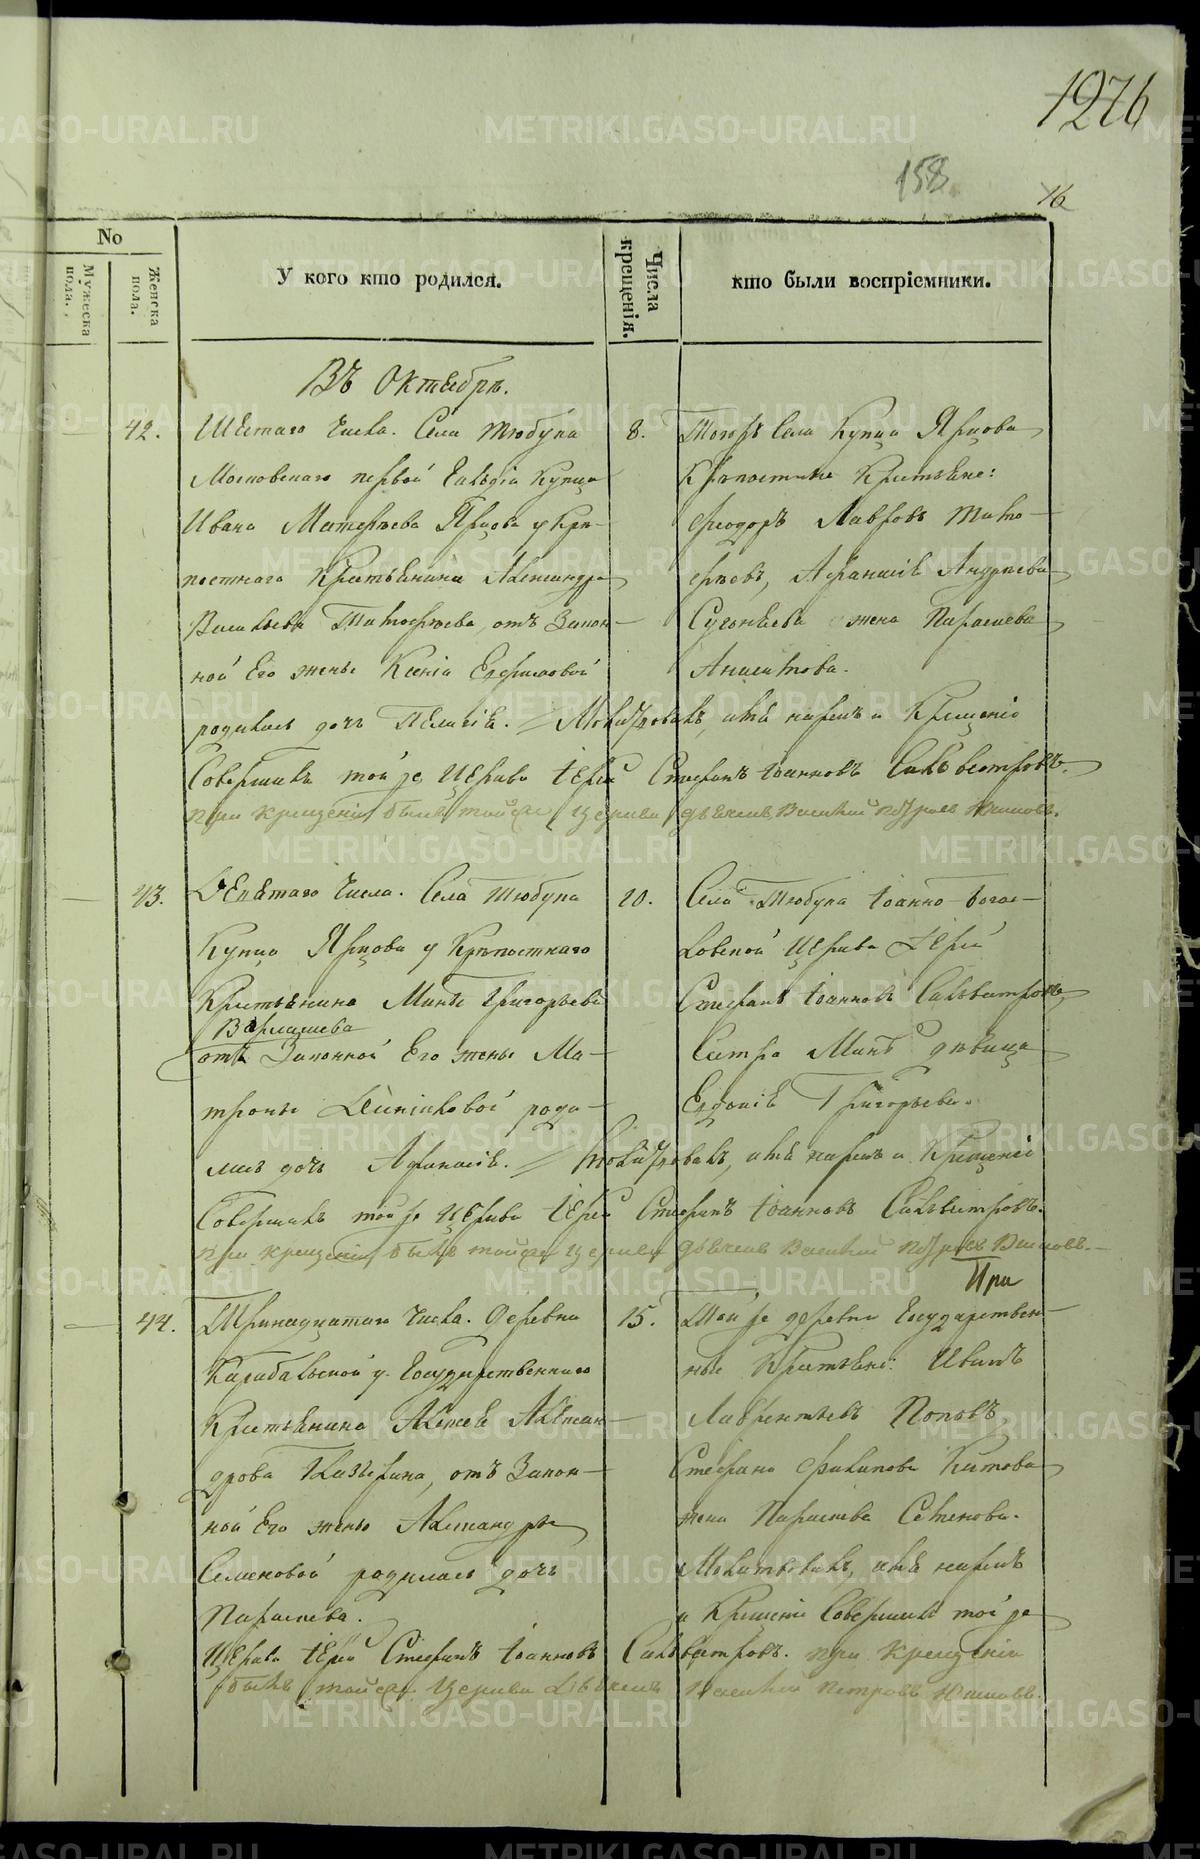 1276
158
16
No
Мужеска пола.
Женска пола.
У кого кто родился.
Числа крещенія.
кто были воспріемники.
Въ Октябрѣ.
42.
Шестаго числа. Села Тюбука
Московскаго первой Гильдіи Купца
Ивана Матвѣева Ярцова у крѣ-
постнаго Крестьянина Александра
Васильева Тимофѣева, отъ Закон-
ной Его жены Ксеніи Ефимовой
8.
Тогожъ Села Купца Ярцова
Крѣпостные Крестьяне:
Феодоръ Лавровъ Тимо-
фѣевъ, Афанасія Андреева
жена Параскева
родилась дочь Пелагія. Молитвовалъ, имя нарекъ и Крещеніе
Совершилъ той же Церкви Іерей Стефанъ Іоанновъ Сильвестровъ.
при крещеніи былъ тойже церкви дьячекъ Василій Петровъ
43.
Девятаго числа. Села Тюбука
Купца Ярцова у Крѣпостнаго
Крестьянина Мины Григорьева
отъ Законной Его жены Ма-
троны роди-
10.
Села Тюбука Іоанно-Богос-
ловской Церкви Іерей
Стефанъ Іоанновъ Сильвестровъ,
Сестра Мины дѣвица
Евдокія Григорьева.
лась дочь Афанасія. Молитвовалъ, имя нарекъ и Крещеніе
Совершилъ той же Церкви Іерей Стефанъ Іоанновъ Сильвестровъ.
при крещеніи былъ тойже церкви дьячекъ Василій Петровъ
При
44.
Тринадцатаго числа. Деревни
Карабольской у Государственнаго
Крестьянина Алексея Алексан-
дрова отъ Закон-
ной Его жены Александры
Семеновой родилась дочь
Параскева.
15.
Той же деревни Государствен-
ные Крестьяне: Иванъ
Лаврентьевъ Поповъ,
Стефана Филипова Китова
жена Параскева Семенова.
Молитвовалъ, имя нарекъ
и Крещеніе Совершилъ той же
Церкви Іерей Стефанъ Іоанновъ Сильвестровъ. при крещеніи
былъ тойже церкви дьячекъ Василій Петровъ
METRIKI.GASO-URAL.RU